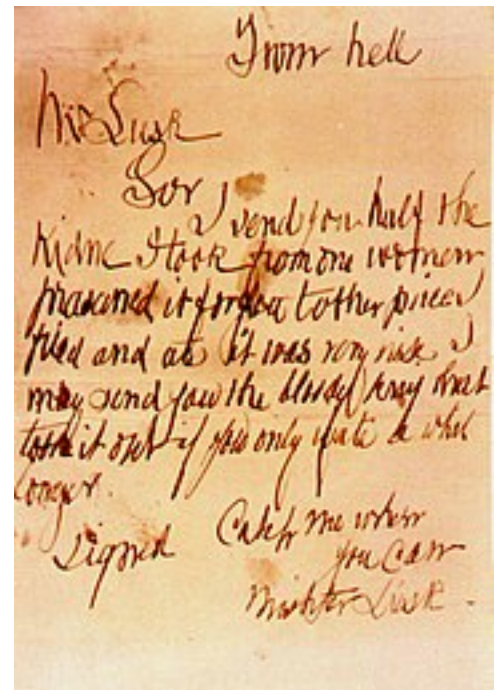 From hell
Mr Lusk
Sor
I send you half the
Kidne I took from one women
prasarved it for you tother piece I
fried and ate it was very nise I
may send you the bloody knif that
took it out if you only wate a whil
longer.
Signed
Catch me when
you Can
Mishter Lusk.